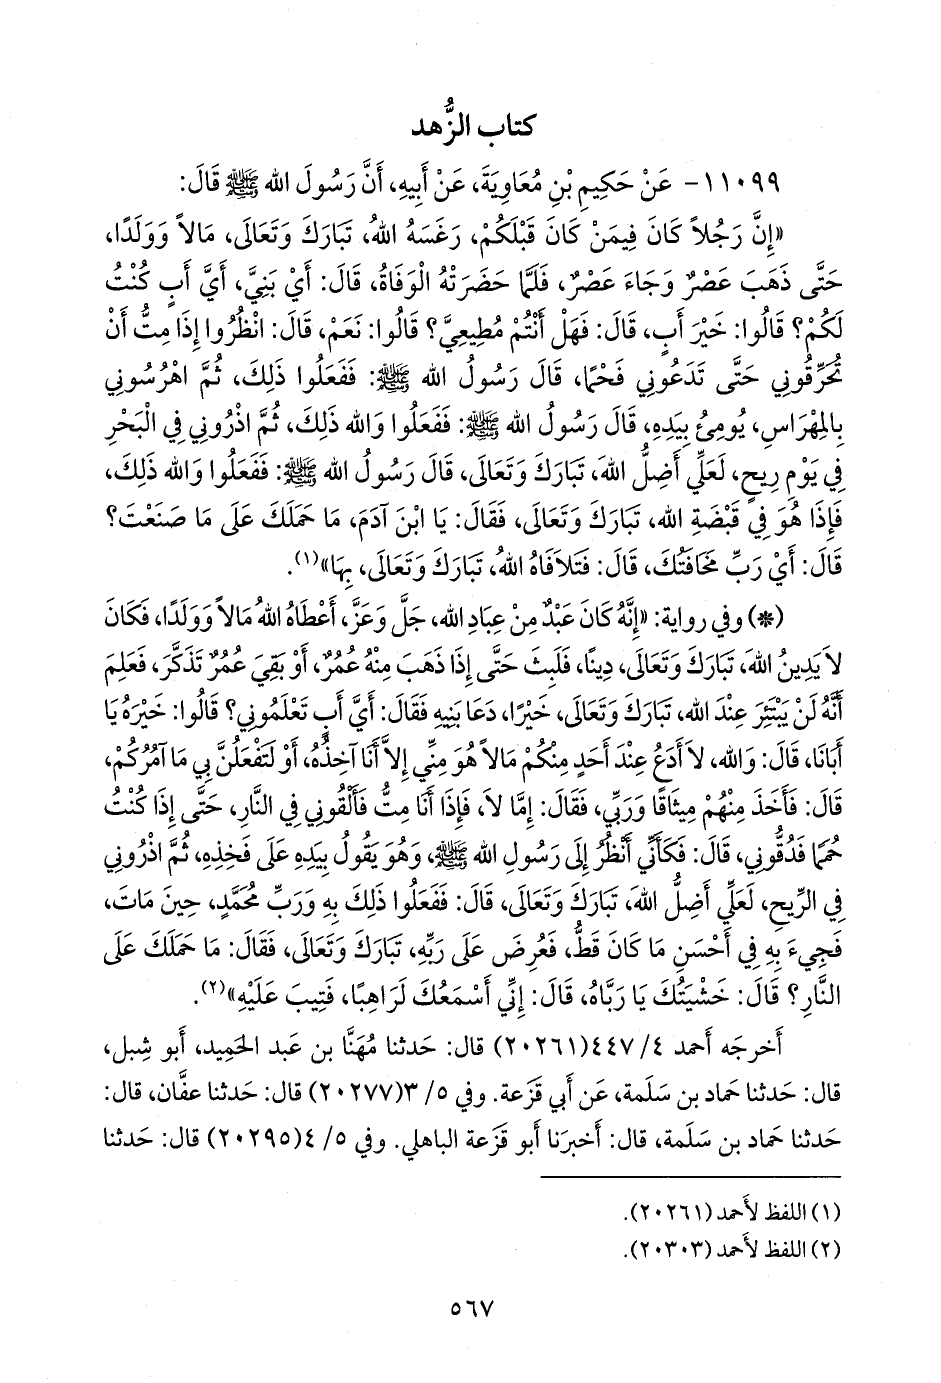 كتاب الزُّهد
١١٠٩٩- عَنْ حَكِيمِ بْنِ مُعَاوِيَةَ، عَنْ أَبِيهِ، أَنَّ رَسُولَ الله ﷺ قَالَ:
«إِنَّ رَجُلاً كَانَ فِيمَنْ كَانَ قَبْلَكُمْ، رَغَسَهُ اللهُ، تَبَارَكَ وَتَعَالَى، مَالاً وَوَلَدًا،
حَتَّى ذَهَبَ عَصْرٌ وَجَاءَ عَصْرٌ، فَلَمَّا حَضَرَتْهُ الْوَفَاةُ، قَالَ: أَيْ بَنِيَّ، أَيَّ أَبٍ كُنْتُ
لَكُمْ؟ قَالُوا: خَيْرَ أَبٍ، قَالَ: فَهَلْ أَنْتُمْ مُطِيعِيَّ؟ قَالُوا: نَعَمْ، قَالَ: انْظُرُوا إِذَا مِتُّ أَنْ
تُحَرِّقُونِي حَتَّى تَدَعُونِي فَحْمًا، قَالَ رَسُولُ الله ﷺ: فَفَعَلُوا ذَلِكَ، ثُمَّ اهْرُسُونِي
بِالمِهْرَاسِ، يُومِئُ بِيَدِهِ، قَالَ رَسُولُ الله ﷺ: فَفَعَلُوا وَالله ذَلِكَ، ثُمَّ اذْرُونِي فِي الْبَحْرِ
فِي يَوْمِ رِيحٍ، لَعَلِّي أَضِلُّ اللهَ، تَبَارَكَ وَتَعَالَى، قَالَ رَسُولُ الله ﷺ: فَفَعَلُوا وَالله ذَلِكَ،
فَإِذَا هُوَ فِي قَبْضَةِ الله، تَبَارَكَ وَتَعَالَى، فَقَالَ: يَا ابْنَ آدَمَ، مَا حَمَلَكَ عَلَى مَا صَنَعْتَ؟
قَالَ: أَيْ رَبِّ مَخَافَتُكَ، قَالَ: فَتَلاَفَاهُ اللهُ، تَبَارَكَ وَتَعَالَى، بِهَا»(١).
(*) وفي رواية: «إِنَّهُ كَانَ عَبْدٌ مِنْ عِبَادِ الله، جَلَّ وَعَزَّ، أَعْطَاهُ اللهُ مَالاً وَوَلَدًا، فَكَانَ
لاَ يَدِينُ اللهَ، تَبَارَكَ وَتَعَالَى، دِينًا، فَلَبِثَ حَتَّى إِذَا ذَهَبَ مِنْهُ عُمُرٌ، أَوْ بَقِيَ عُمُرٌ تَذَكَّرَ، فَعَلِمَ
أَنَّهُ لَنْ يَبْتَئِرَ عِنْدَ الله، تَبَارَكَ وَتَعَالَى، خَيْرًا، دَعَا بَنِيهِ فَقَالَ: أَيَّ أَبٍ تَعْلَمُونِي؟ قَالُوا: خَيْرَهُ يَا
أَبَانَا، قَالَ: وَالله، لاَ أَدَعُ عِنْدَ أَحَدٍ مِنْكُمْ مَالاً هُوَ مِنِّي إِلاَّ أَنَا آخِذُهُ، أَوْ لَتَفْعَلُنَّ بِي مَا آمُرُكُمْ،
قَالَ: فَأَخَذَ مِنْهُمْ مِيثَاقًا وَرَبِّي، فَقَالَ: إِمَّا لاَ، فَإِذَا أَنَا مِتُّ فَأَلْقُونِي فِي النَّارِ، حَتَّى إِذَا كُنْتُ
حُمَمًا فَدُقُّونِي، قَالَ: فَكَأَنِّي أَنْظُرُ إِلَى رَسُولِ الله ﷺ، وَهُوَ يَقُولُ بِيَدِهِ عَلَى فَخِذِهِ، ثُمَّ اذْرُونِي
فِي الرِّيحِ، لَعَلِّي أَضِلُّ اللهَ، تَبَارَكَ وَتَعَالَى، قَالَ: فَفَعَلُوا ذَلِكَ بِهِ وَرَبِّ مُحَمَّدٍ، حِينَ مَاتَ،
فَجِيءَ بِهِ فِي أَحْسَنِ مَا كَانَ قَطُّ، فَعُرِضَ عَلَى رَبِّهِ، تَبَارَكَ وَتَعَالَى، فَقَالَ: مَا حَمَلَكَ عَلَى
النَّارِ؟ قَالَ: خَشْيَتُكَ يَا رَبَّاهُ، قَالَ: إِنِّي أَسْمَعُكَ لَرَاهِبًا، فَتِيبَ عَلَيْهِ»(٢).
أَخرجَه أَحمد ٤/ ٤٤٧(٢٠٢٦١) قال: حَدثنا مُهَنَّا بن عَبد الحَمِيد، أَبو شِبل،
قال: حَدثنا حَماد بن سَلَمة، عَن أَبي قَزَعة. وفي ٥/ ٣(٢٠٢٧٧) قال: حَدثنا عفَّان، قال:
حَدثنا حَماد بن سَلَمة، قال: أَخبرَنا أَبو قَزَعة الباهلي. وفي ٥/ ٤(٢٠٢٩٥) قال: حَدثنا
(١) اللفظ لأَحمد (٢٠٢٦١).
(٢) اللفظ لأَحمد (٢٠٣٠٣).
٥٦٧